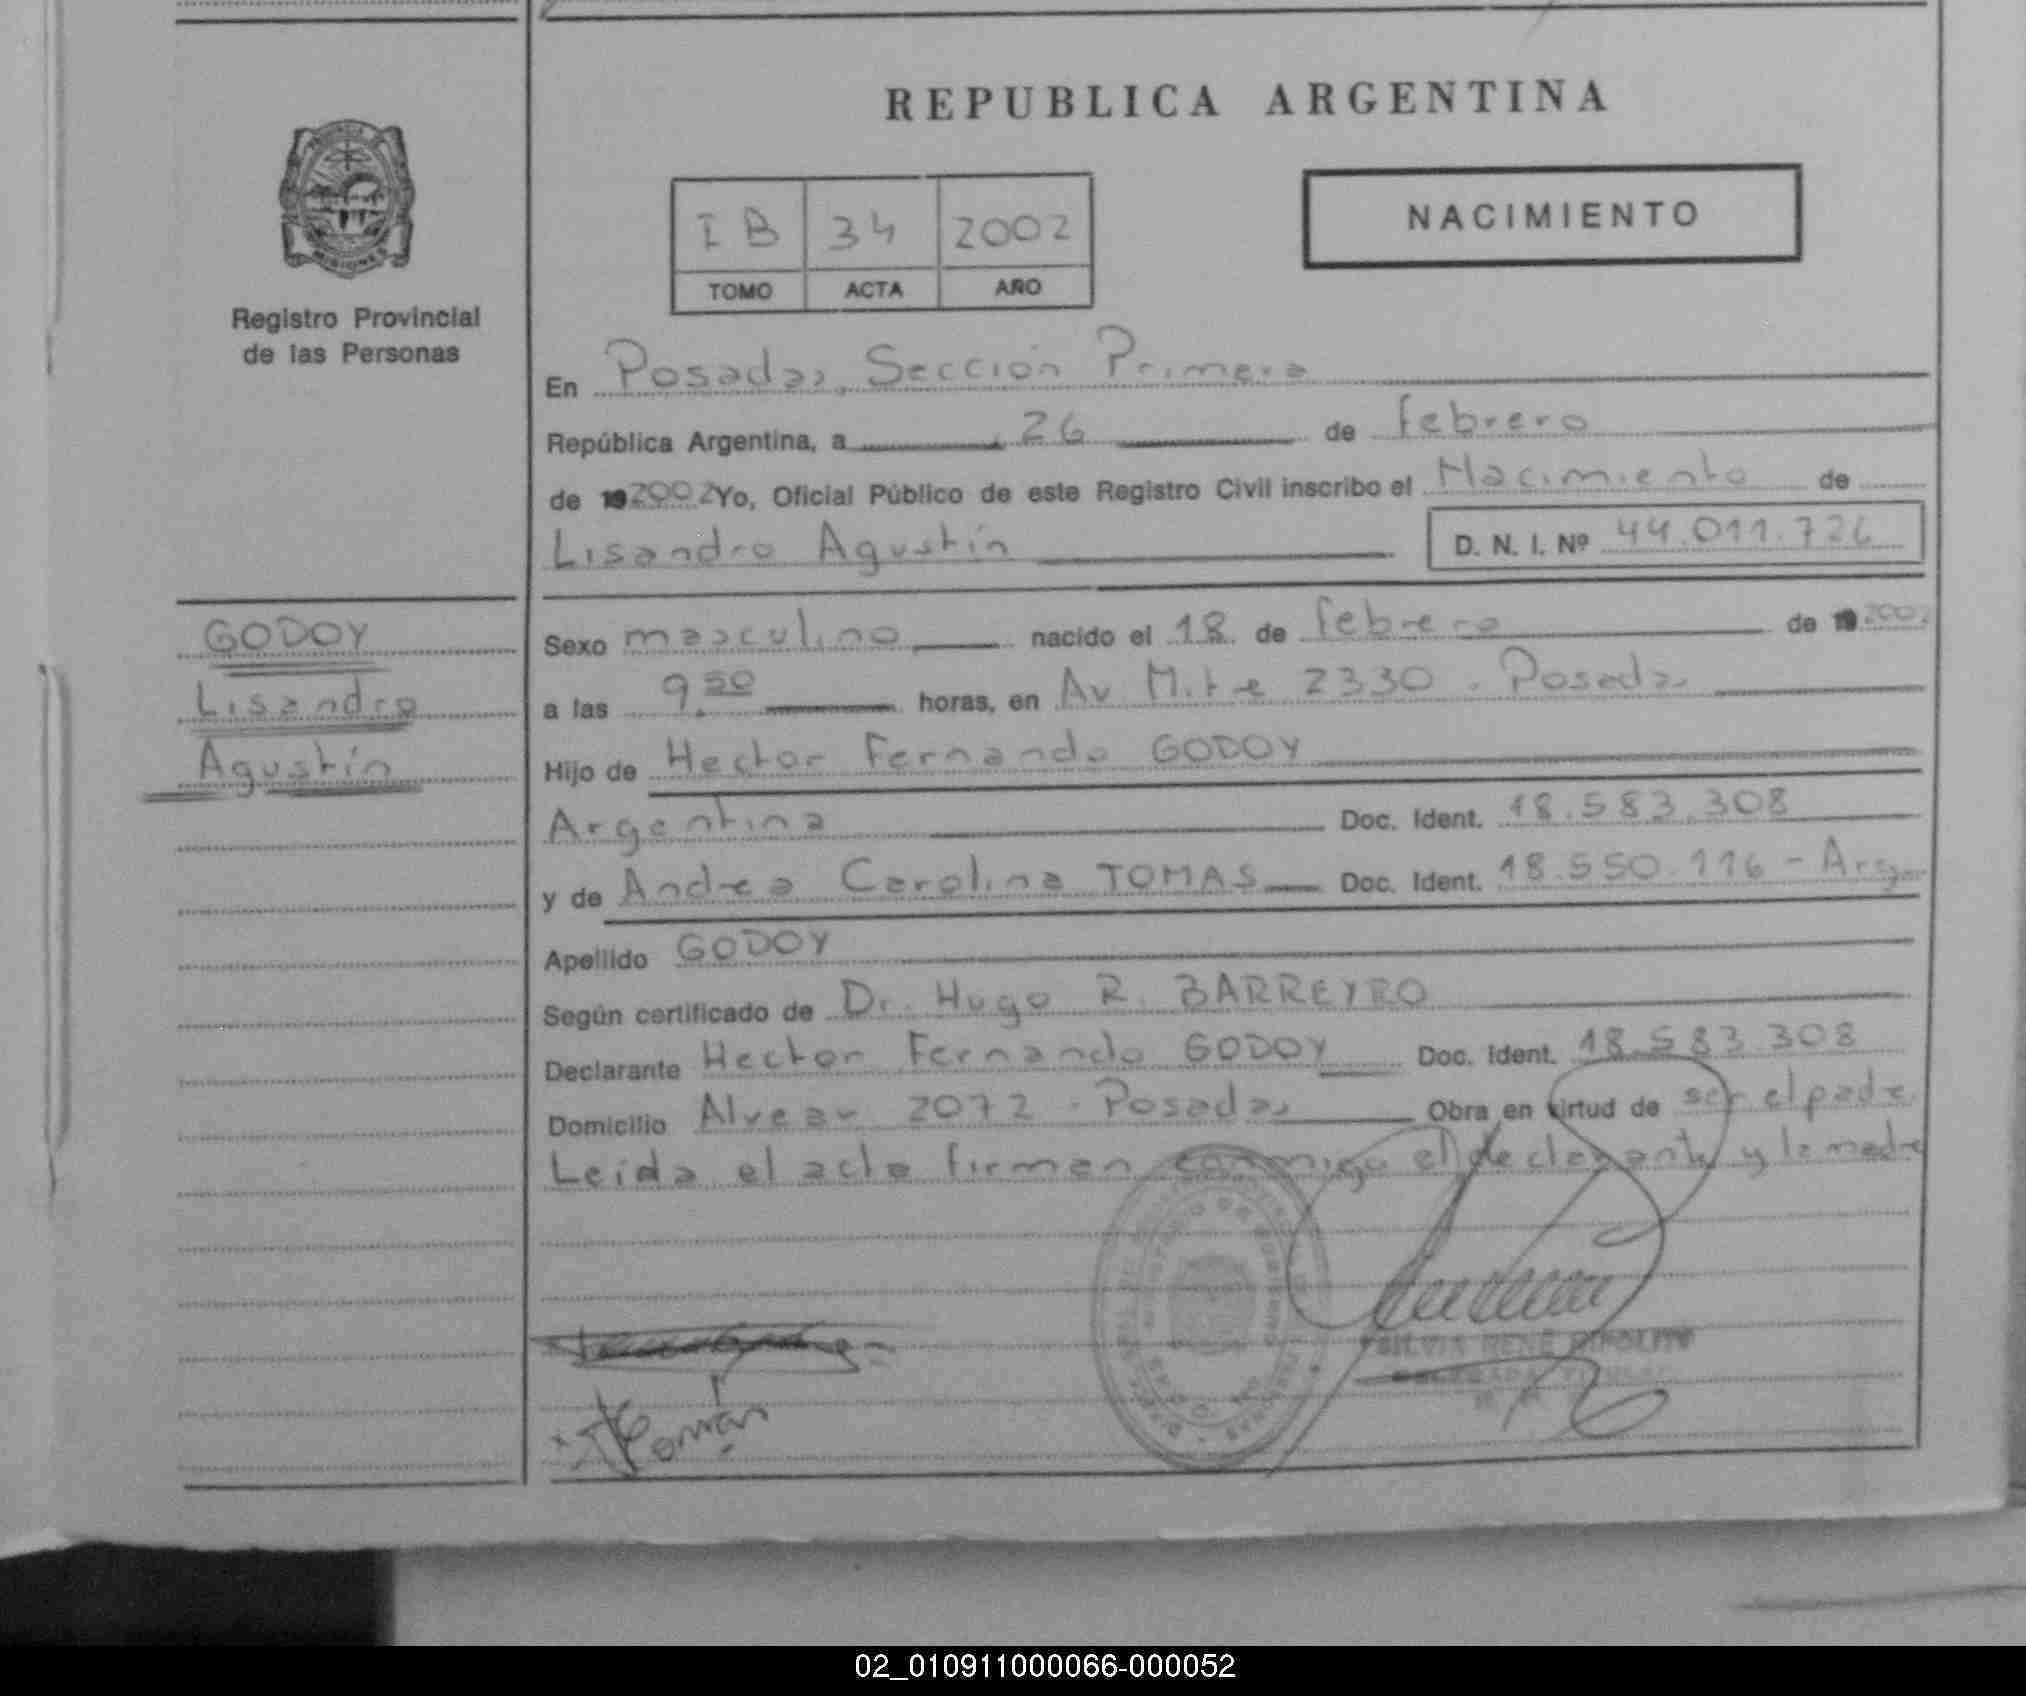 REPUBLICA ARGENTINA
I B 34 2002
TOMO ACTA AÑO
NACIMIENTO
MISIONES
Registro Provincial
de las Personas
En Posadas, Sección Primera
República Argentina, a 26 de febrero
de 19 2002 Yo, Oficial Público de este Registro Civil inscribo el Nacimiento de
Lisandro Agustín D. N. I. Nº 44.011.726
GODOY
Lisandro
Agustín
Sexo masculino nacido el 18 de febrero de 19 2002
a las 9.50 horas, en Av Mitre 2330 - Posadas
Hijo de Hector Fernando GODOY
Argentina Doc. Ident. 18.583.308
y de Andrea Carolina TOMAS Doc. Ident. 18.550.116 - Arg
Apellido GODOY
Según certificado de Dr. Hugo R. BARREYRO
Declarante Hector Fernando GODOY Doc. Ident. 18.583.308
Domicilio Alvear 2072 - Posadas Obra en virtud de ser el padre
Leida el acta firman conmigo el declarante y la madre
SILVIA RENE RIPOLITY
02_010911000066-000052